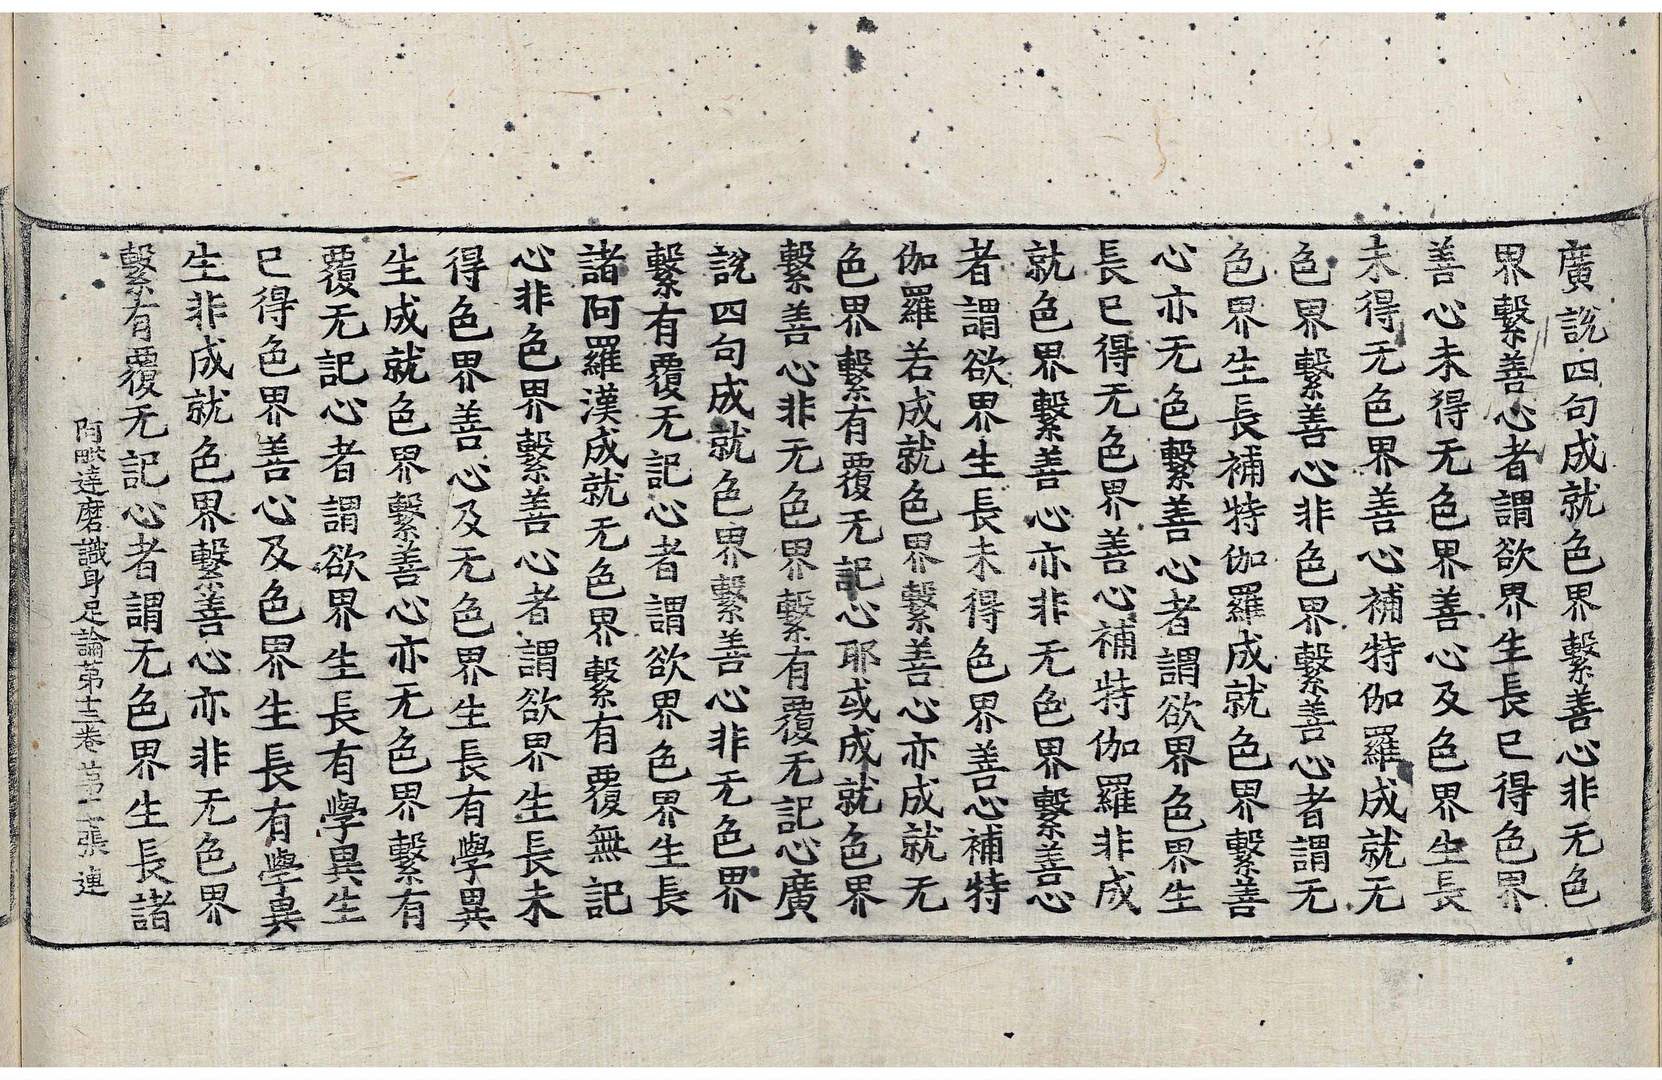 廣說四句成就色界繫善心非无色
界繫善心者謂欲界生長已得色界
善心未得无色界善心及色界生長
未得无色界善心補特伽羅成就无
色界繫善心非色界繫善心者謂无
色界生長補特伽羅成就色界繫善
心亦无色繫善心者謂欲界色界生
長已得无色界善心補特伽羅非成
就色界繫善心亦非无色界繫善心
者謂欲界生長未得色界善心補特
伽羅若成就色界繫善心亦成就无
色界繫有覆无記心耶或成就色界
繫善心非无色界繫有覆无記心廣
說四句成就色界繫善心非无色界
繫有覆无記心者謂欲界色界生長
諸阿羅漢成就无色界繫有覆無記
心非色界繫善心者謂欲界生長未
得色界善心及无色界生長有學異
生成就色界繫善心亦无色界繫有
覆无記心者謂欲界生長有學異生
已得色界善心及色界生長有學異
生非成就色界繫善心亦非无色界
繫有覆无記心者謂无色界生長諸
阿毗達磨識身足論第十三卷 第十 張 連